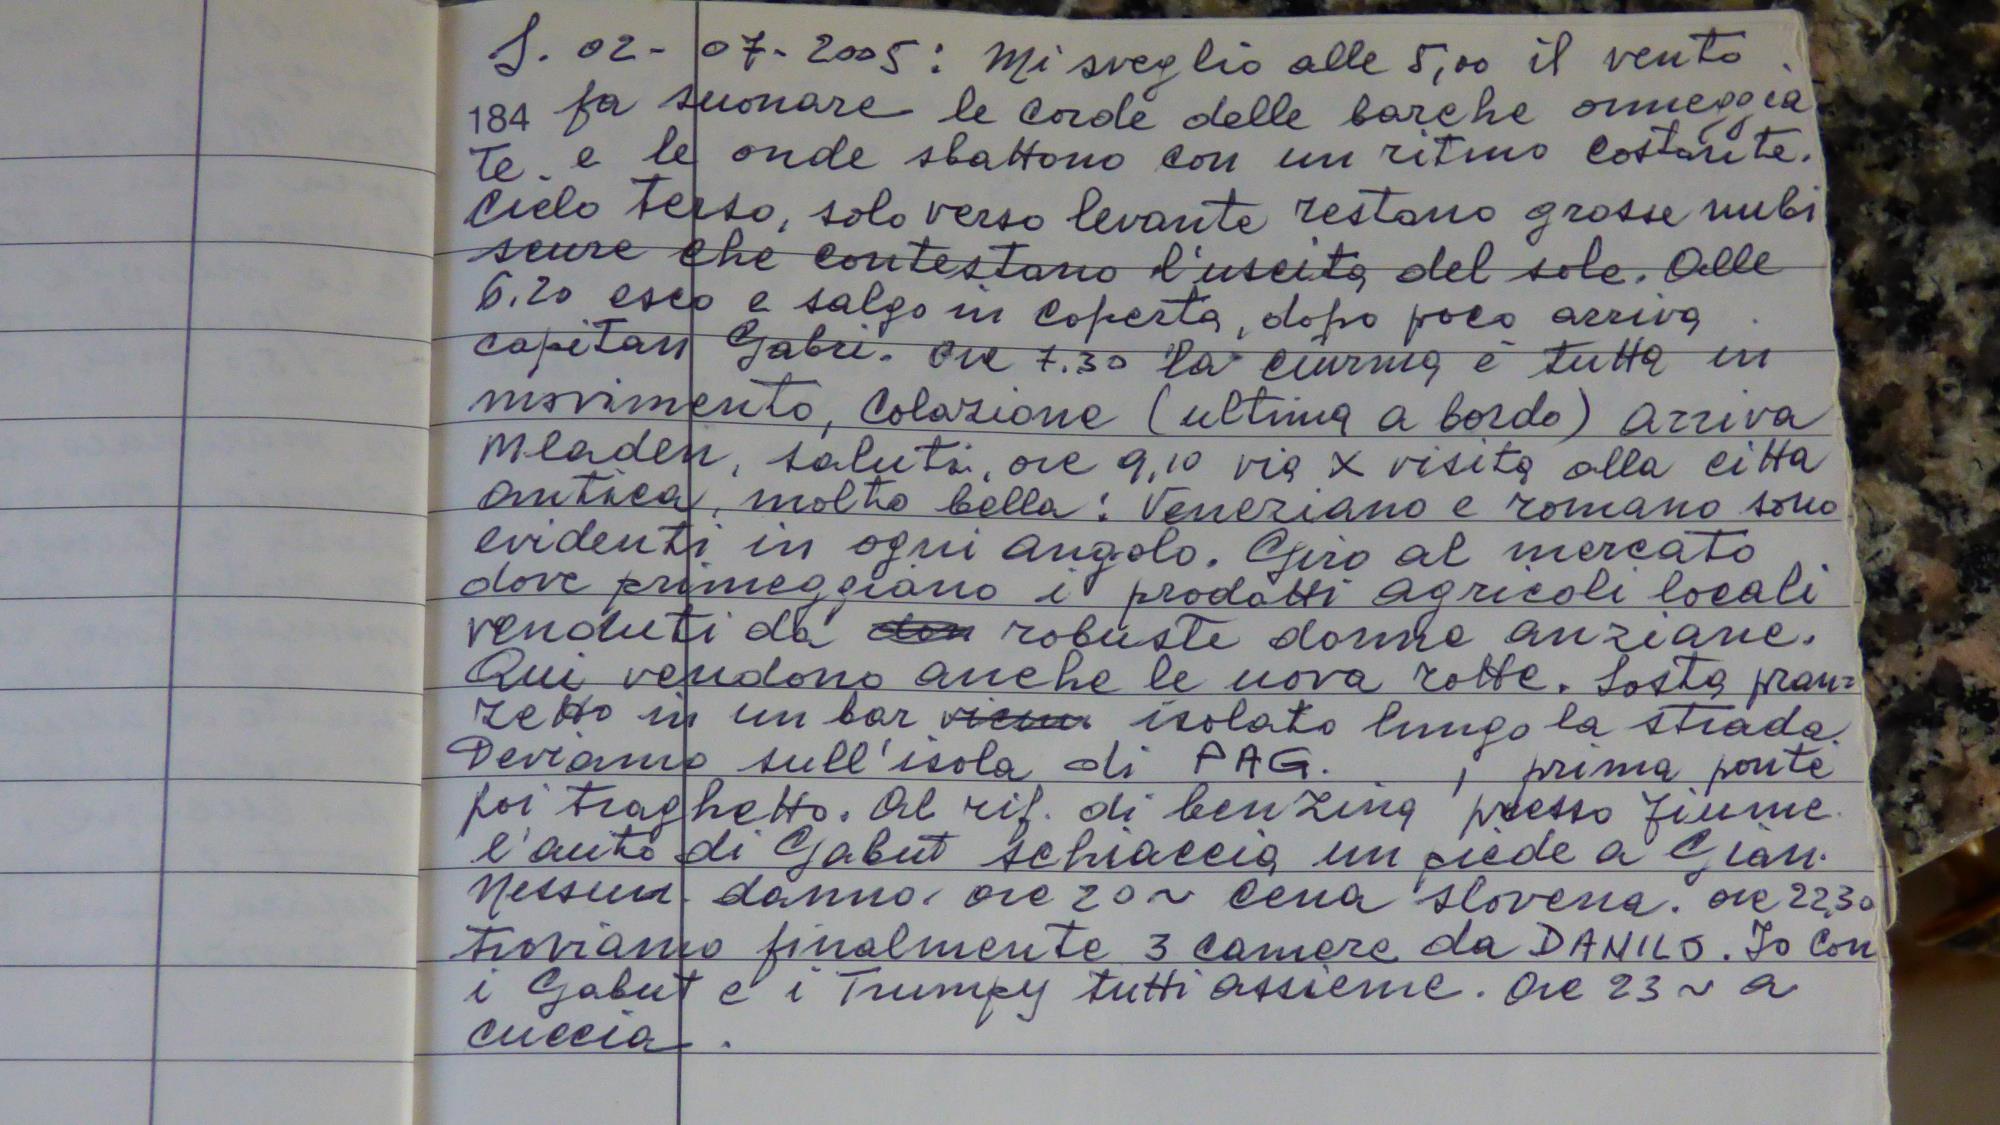 S. 02-07-2005: Mi sveglio alle 5,00 il vento
184 fa suonare le corde delle barche ormeggia
te. e le onde sbattono con un ritmo costante.
Cielo terso, solo verso levante restano grosse nubi
scure che contestano l'uscita del sole. Alle
6.20 esco e salgo in coperta, dopo poco arriva
capitan Gabri. ore 7.30 la ciurma è tutta in
movimento, Colazione (ultima a bordo) arriva
Mladen, saluti, ore 9,10 via x visita alla città
antica, molto bella: Veneziano e romano sono
evidenti in ogni angolo. Giro al mercato
dove primeggiano i prodotti agricoli locali
venduti da don robuste donne anziane.
Qui vendono anche le uova rotte. Sosta pran=
zetto in un bar isolato lungo la strada.
Deviamo sull'isola di PAG. , prima ponte
poi traghetto. Al rif. di benzina presso Fiume
l'auto di Gabut schiaccia un piede a Gian.
Nessun danno. ore 20~ cena slovena. ore 22,30
troviamo finalmente 3 camere da DANILO. Io con
i Gabut e i Trumpy tutti assieme. Ore 23~ a
cuccia.